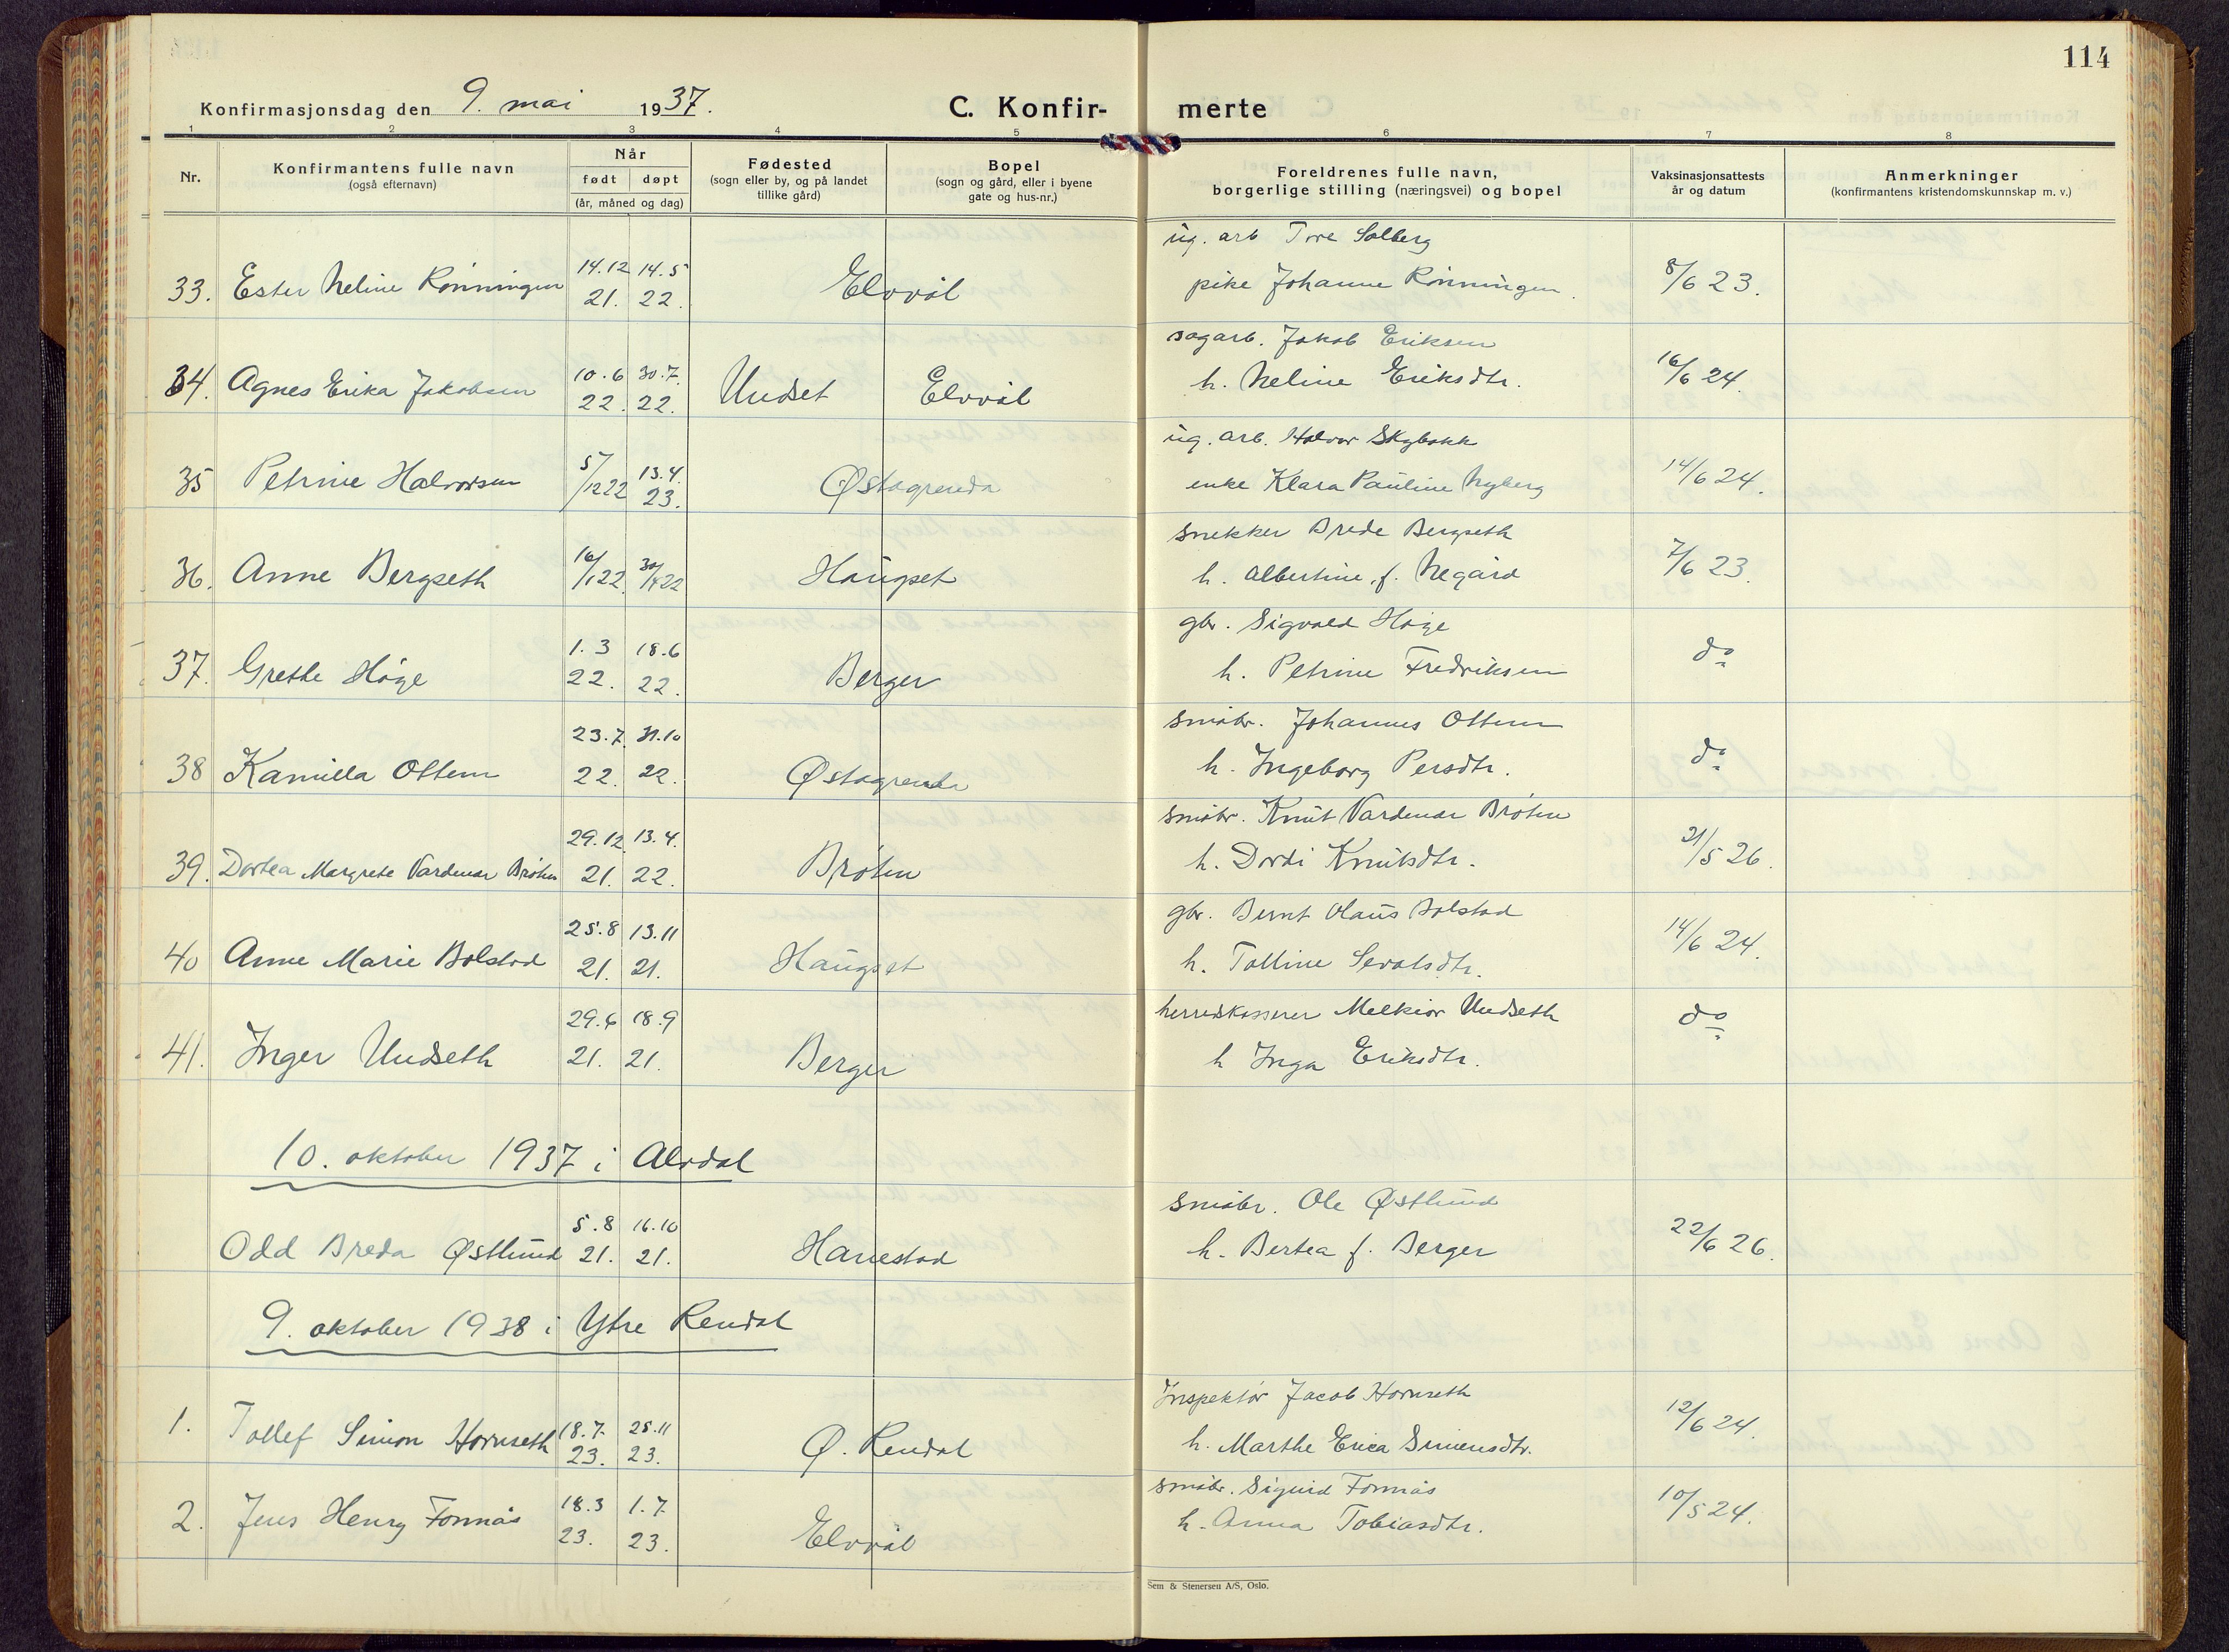 114
Konfirmasjonsdag den 9. mai 1937.
C. Konfirmerte
1 2 3 4 5 6 7 8
Nr.
Konfirmantens fulle navn
(også efternavn)
Når
født døpt
(år, måned og dag)
Fødested
(sogn eller by, og på landet
tillike gård)
Bopel
(sogn og gård, eller i byene
gate og hus-nr.)
Foreldrenes fulle navn,
borgerlige stilling (næringsvei) og bopel
Vaksinasjonsattests
år og datum
Anmerkninger
(konfirmantens kristendomskunnskap m. v.)
14.12 14.5 ug. arb Tore Solberg
33. Ester Neline Rønningen 21. 22. Elvvål pike Johanne Rønningen. 8/6 23.
10.6 30.7. sagarb. Jakob Eriksen
34. Agnes Erika Jakobsen 22. 22. Undset Elvvål h. Neline Eriksdtr. 16/6 24.
5/1222 13.4. ug. arb. Halvor Skybakk
35 Petrine Halvorsen 23. Østagrenda enke Klara Pauline Nyberg 14/6 24.
snekker Brede Bergseth
36. Anne Bergseth 16/1 22. 30/4 22 Haugset h. Albertine, f. Negård 7/6 23.
1.3 18.6 gbr. Sigvald Høge
37. Grethe Høge 22. 22. Berger h. Petrine Fredriksen do
23.7. 31.10 småbr. Johannes Ottem
38 Kamilla Ottem 22. 22. Østagrenda h. Ingeborg Persdtr. do
29.12. 13.4. småbr. Knut Vardenær Brøten
39. Dortea Margrete Vardenær Brøten 21. 22. Brøten h. Dordi Knutsdtr. 21/5 26.
25.8 13.11 gbr. Bernt Olaus Bolstad
40 Anne Marie Bolstad 21. 21. Haugset h. Tolline Sevatsdtr. 14/6 24.
29.6 18.9 herredskasserer Melkior Undseth
41. Inger Undseth 21. 21. Berger h Inga Eriksdtr. do
10. oktober 1937 i Alvdal
5.8 16.10 småbr. Ole Østlund
Odd Breda Østlund 21. 21. Hanestad h. Bertea f. Berger 22/6 26.
9. oktober 1938 i Ytre Rendal
Inspektør Jacob Hornseth
1. Tollef Simon Hornseth 18.7. 25.11 12/6 24.
23. 23. Ø. Rendal h. Marthe Erica Simensdtr.
18.3 1.7. småbr. Sigurd Fonnås
2. Jens Henry Fonnås 23. 23. Elvvål h. Anna Tobiasdtr. 10/5 24.
Sem & Stenersen A/S, Oslo.